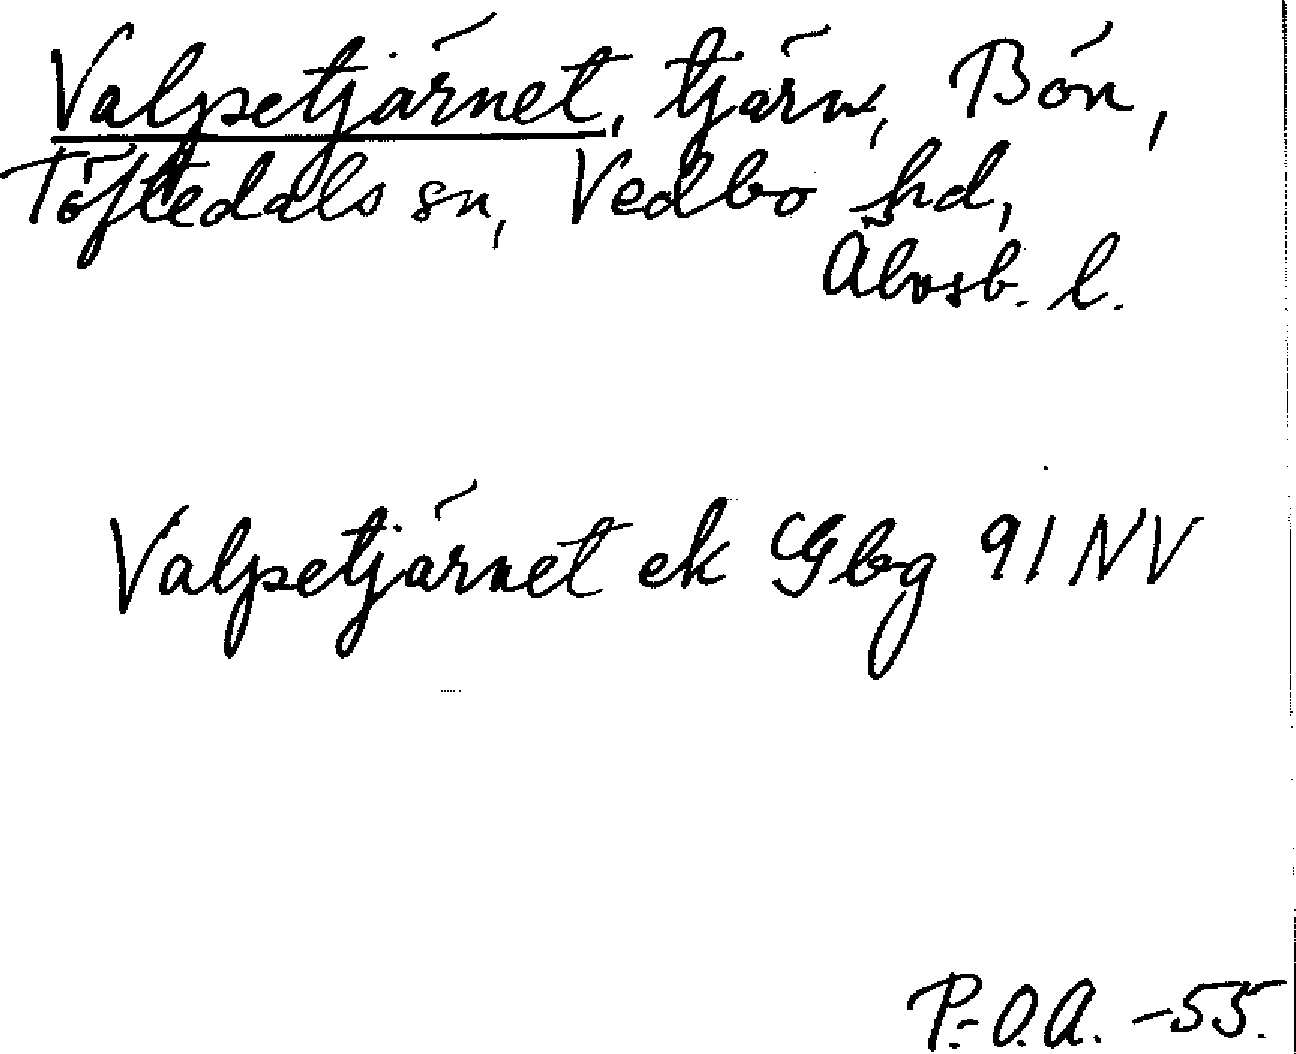 Valpetjärnet, tjärn, Bön,
Töftedals sn, Vedbo hd,
Älvsb. l.
Valpetjärnet ek Gbg 91 NV
P.-O.A. -55.